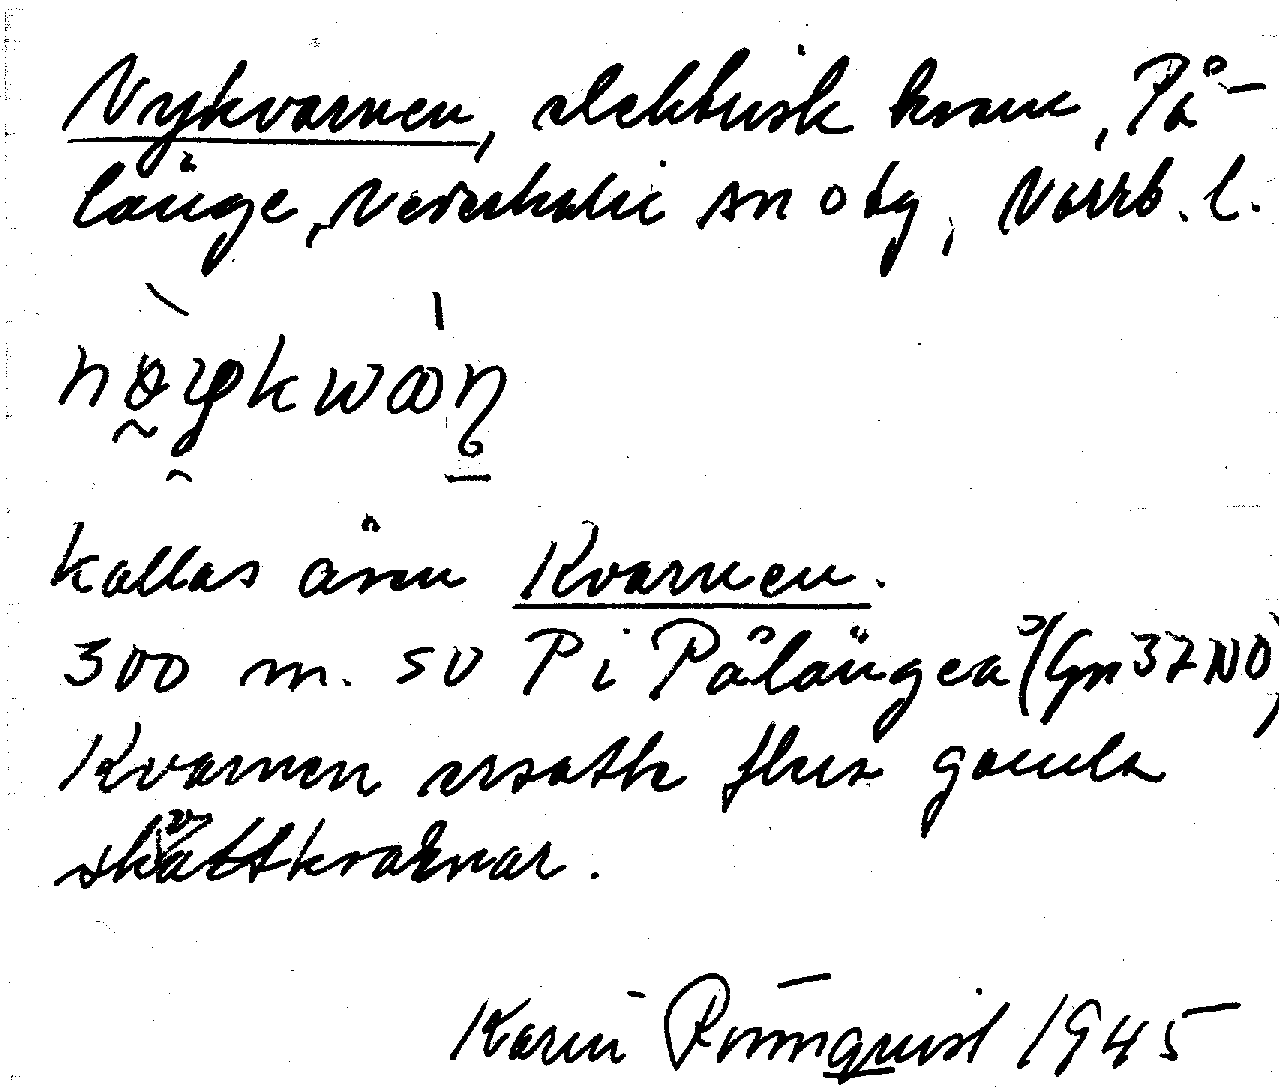 Nykvarnen, elektrisk kvarn, På-
länge, Nederkalix sn o tg, Norrb. l.
kallas även Kvarnen.
300 m. SV P i Pålängea (Gpl 37 NO)
Kvarnen ersatte flera gamla
skattkvarnar.
Karin Rönnquist 1945